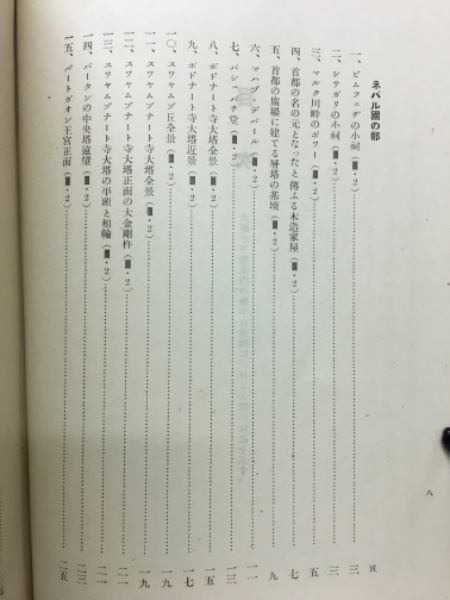 ネパル國の部
頁
一、ビムフェヂの小祠(・2)……三
二、シサガリの小祠(・2)……三
三、マルク川畔のポワー(・2)……五
四、首都の名の元となつたと傳ふる木造家屋(・2)……七
五、首都の廣場に建てる層塔の基壇(・2)……九
六、マハヅ・デバール(・2)……一一
七、パシュパチ堂(・2)……一三
八、ボドナート寺大塔全景(・2)……一五
九、ボドナート寺大塔近景(・2)……一七
一〇、スワヤムブ丘全景(・2)……一九
一一、スワヤムブナート寺大塔全景(・2)……一九
一二、スワヤムブナート寺大塔正面の大金剛杵(・2)……二一
一三、スワヤムブナート寺大塔の平頭と相輪(・2)……二一
一四、パータンの中央塔遠望(・2)……二三
一五、バートガオン王宮正面(・2)……二五
八